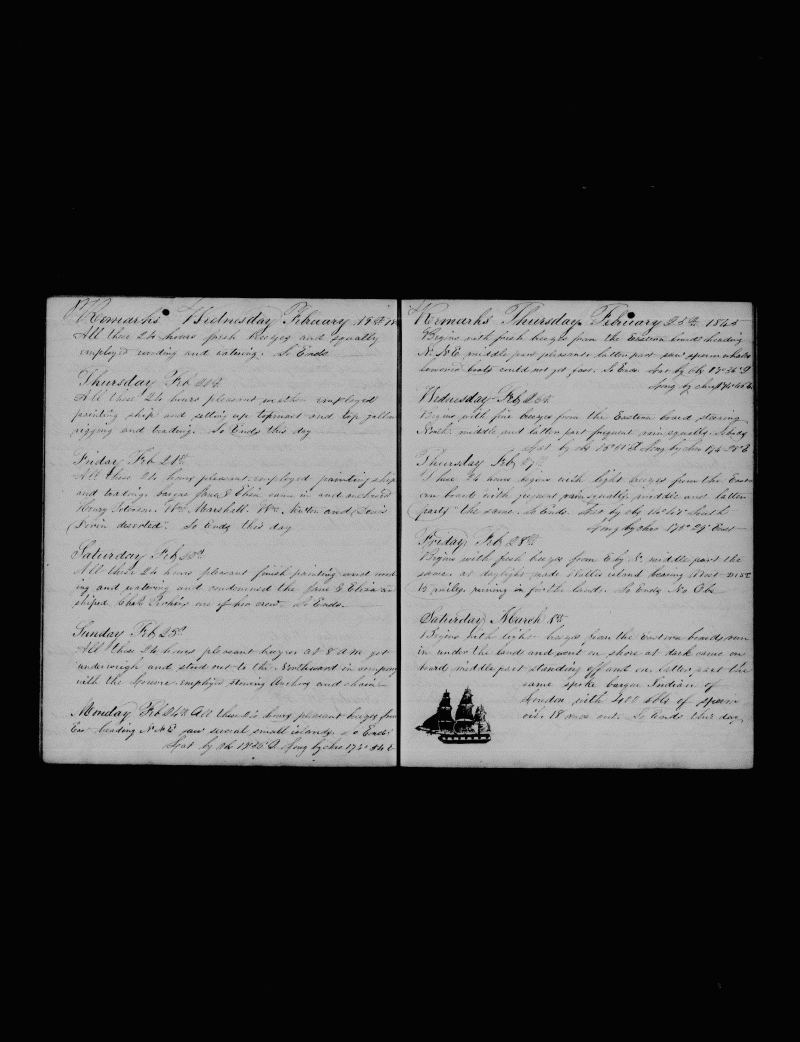 Remarks Wednesday February 19th
All these 24 hours fresh breezes and squally
employed wooding and watering. So Ends
Thursday Feb 20th
All these 24 hours pleasant weather employed
painting ship and setting up topmast and top gallan
rigging and trading. So Ends this day
Friday Feb 21st
All these 24 hours pleasant employed painting ship
and trading. barque Jane & Eliza came in and anchored
Henry Wm Marshall. Wm Newton and Lewis
deserted. So Ends this day
Saturday Feb 22d
All these 24 hours pleasant finish painting and wood
ing and watering and condemned the Jane & Eliza an
shiped Chas one of her crew. So Ends.
Sunday Feb 23d
All these 24 hours pleasant breezes at 8 A M got
underweigh and stood out to the Northward in company
with the employed stowing Anchors and chains
Monday Feb 24th All these 24 hours pleasant breezes from
East heading N.N.E saw several small islands. So Ends
Lat by Ob Long by chro
Remarks Thursday February 25th 1845
Begins with fresh breezes from the Eastern board heading
N. N. E. middle part pleasant latter part saw sperm whales
lowered boats could not get fast. So Ends Lat by Ob
Long by chro
Wednesday Feb 26th
Begins with fine breezes from the Eastern board steering
North. middle and latter part frequent rain squalls.
Lat by Ob Long by chro
Thursday Feb 27th
These 24 hours begin with light breezes from the East
ern board with frequent rain squalls middle and latter
party the same. So Ends. Lat by Ob South
Long by chro East
Friday Feb 28th
Begins with fresh breezes from E. by N. middle part the
same. at daylight made Wallis island bearing West Dist
15 miles running in for the land. So Ends No Obs
Saturday March 1st
Begins with light breezes from the Eastern board run
in under the land and went on shore at dark came on
board middle part standing off and on. latter part the
same spoke barque Indian of
London with 400 bbls of sperm
oil. 18 mos out. So Ends this day